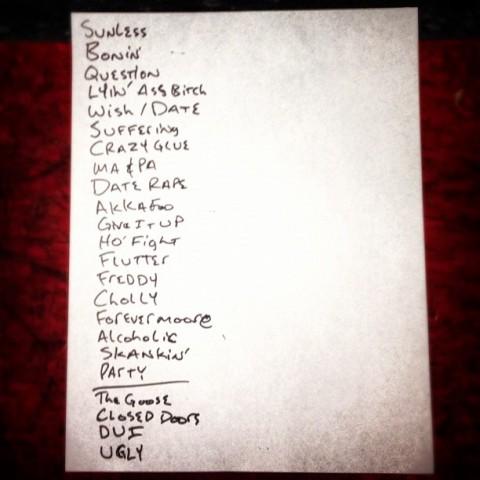 SUNLESS
BONIN'
QUESTION
LYIN' ASS BITCH
WISH / DATE
SUFFERING
CRAZY GLUE
MA & PA
DATE RAPE
AKKAFOO
GIVE IT UP
HO' FIGHT
FLUTTER
FREDDY
CHOLLY
FOREVERMOORE
ALCOHOLIC
SKANKIN'
PARTY
THE GOOSE
CLOSED DOORS
DUI
UGLY